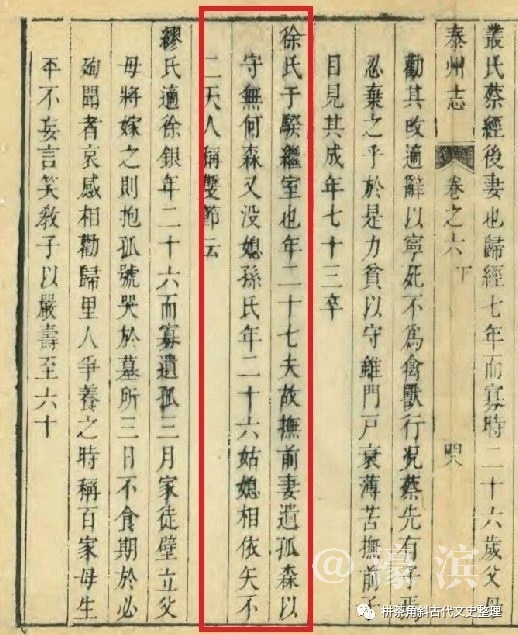 叢氏蔡經後妻也歸經七年而寡時二十六歲父母
泰州志 卷之六 下 四八
勸其改適辭以寧死不爲禽獸行况蔡先有子焉
忍棄之乎於是力貧以守雖門戶衰薄苦撫前子
目見其成年七十三卒
徐氏于騤繼室也年二十七夫故撫前妻遺孤森以
守無何森又没媳孫氏年二十六姑媳相依矢不
二天人稱雙節云
繆氏適徐銀年二十六而寡遺孤三月家徒壁立父
母將嫁之則抱孤號哭於墓所三日不食期於必
殉聞者哀感相勸歸里人爭養之時稱百家母生
平不妄言笑敎子以嚴壽至六十
@濠滨
栟茶角斜古代文史整理